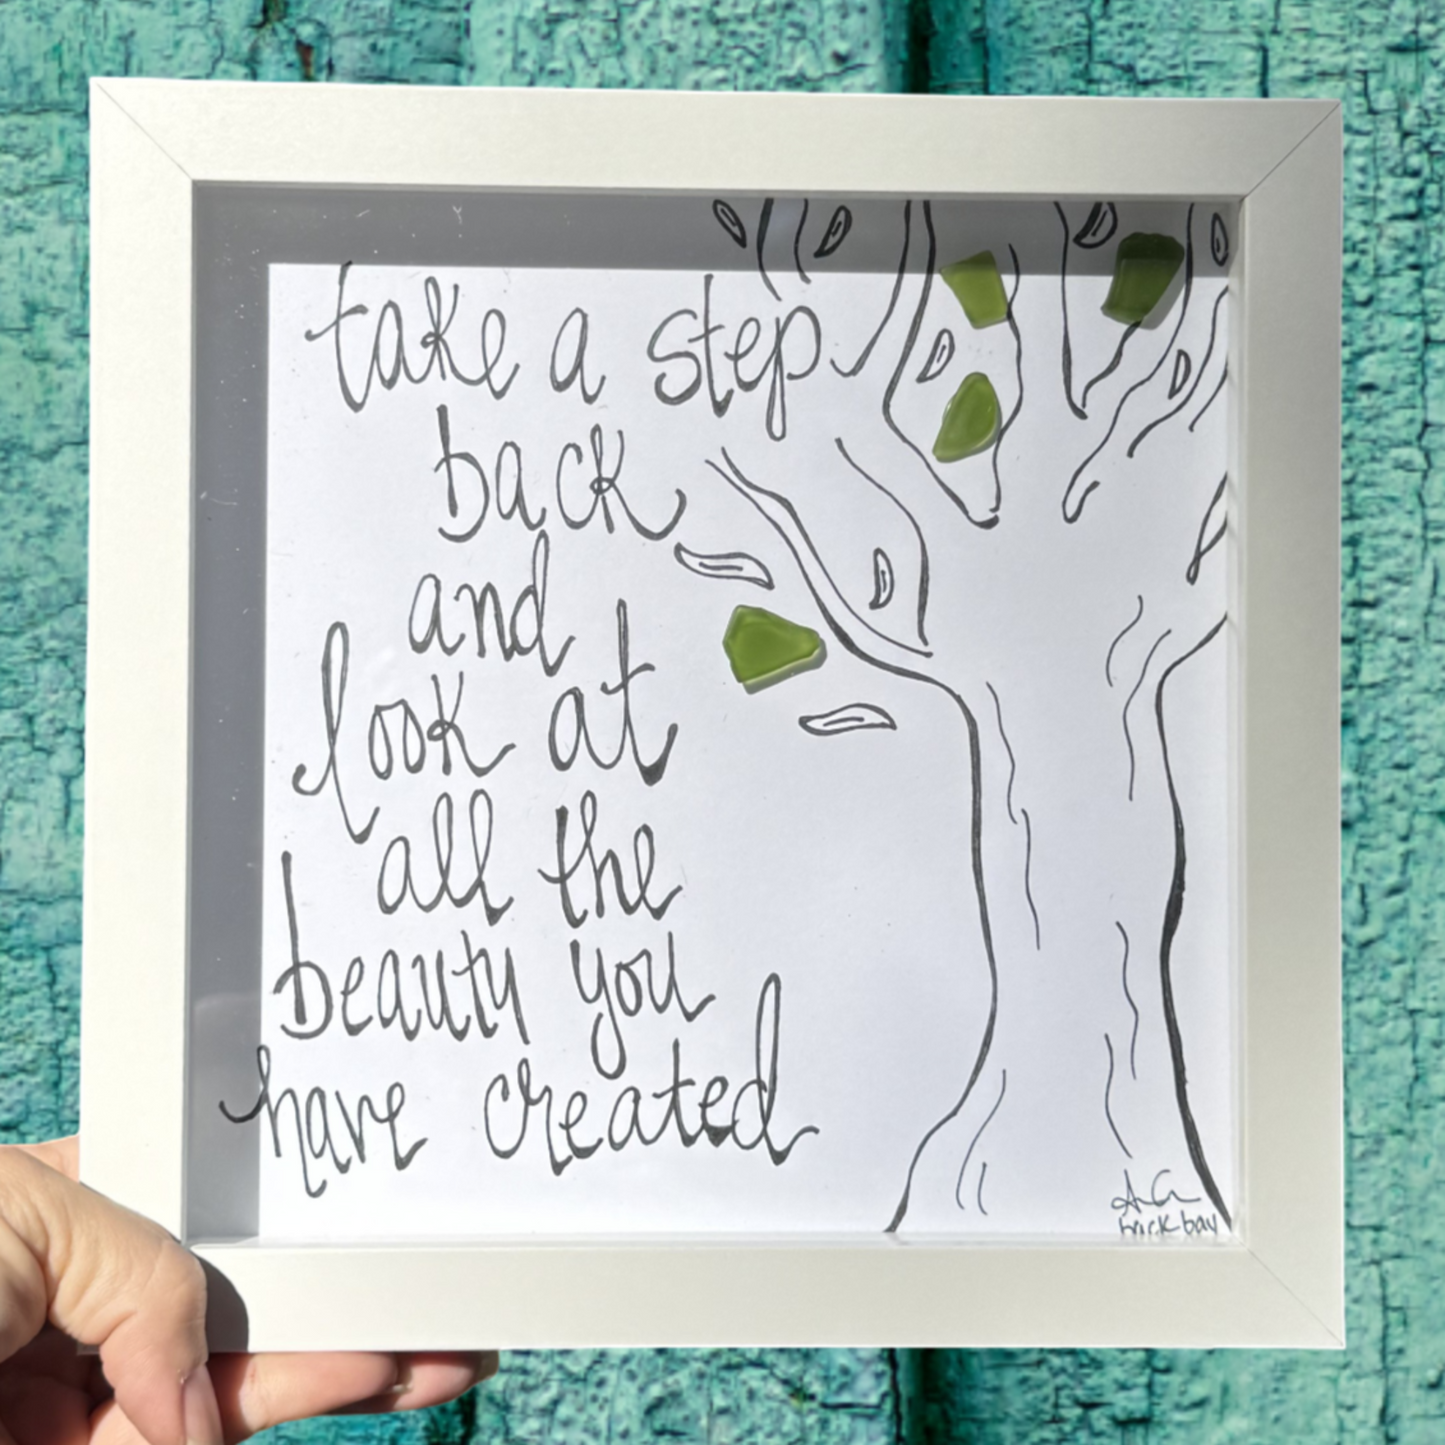 take a step
back
and
look at
all the
beauty you
have created
brick bay